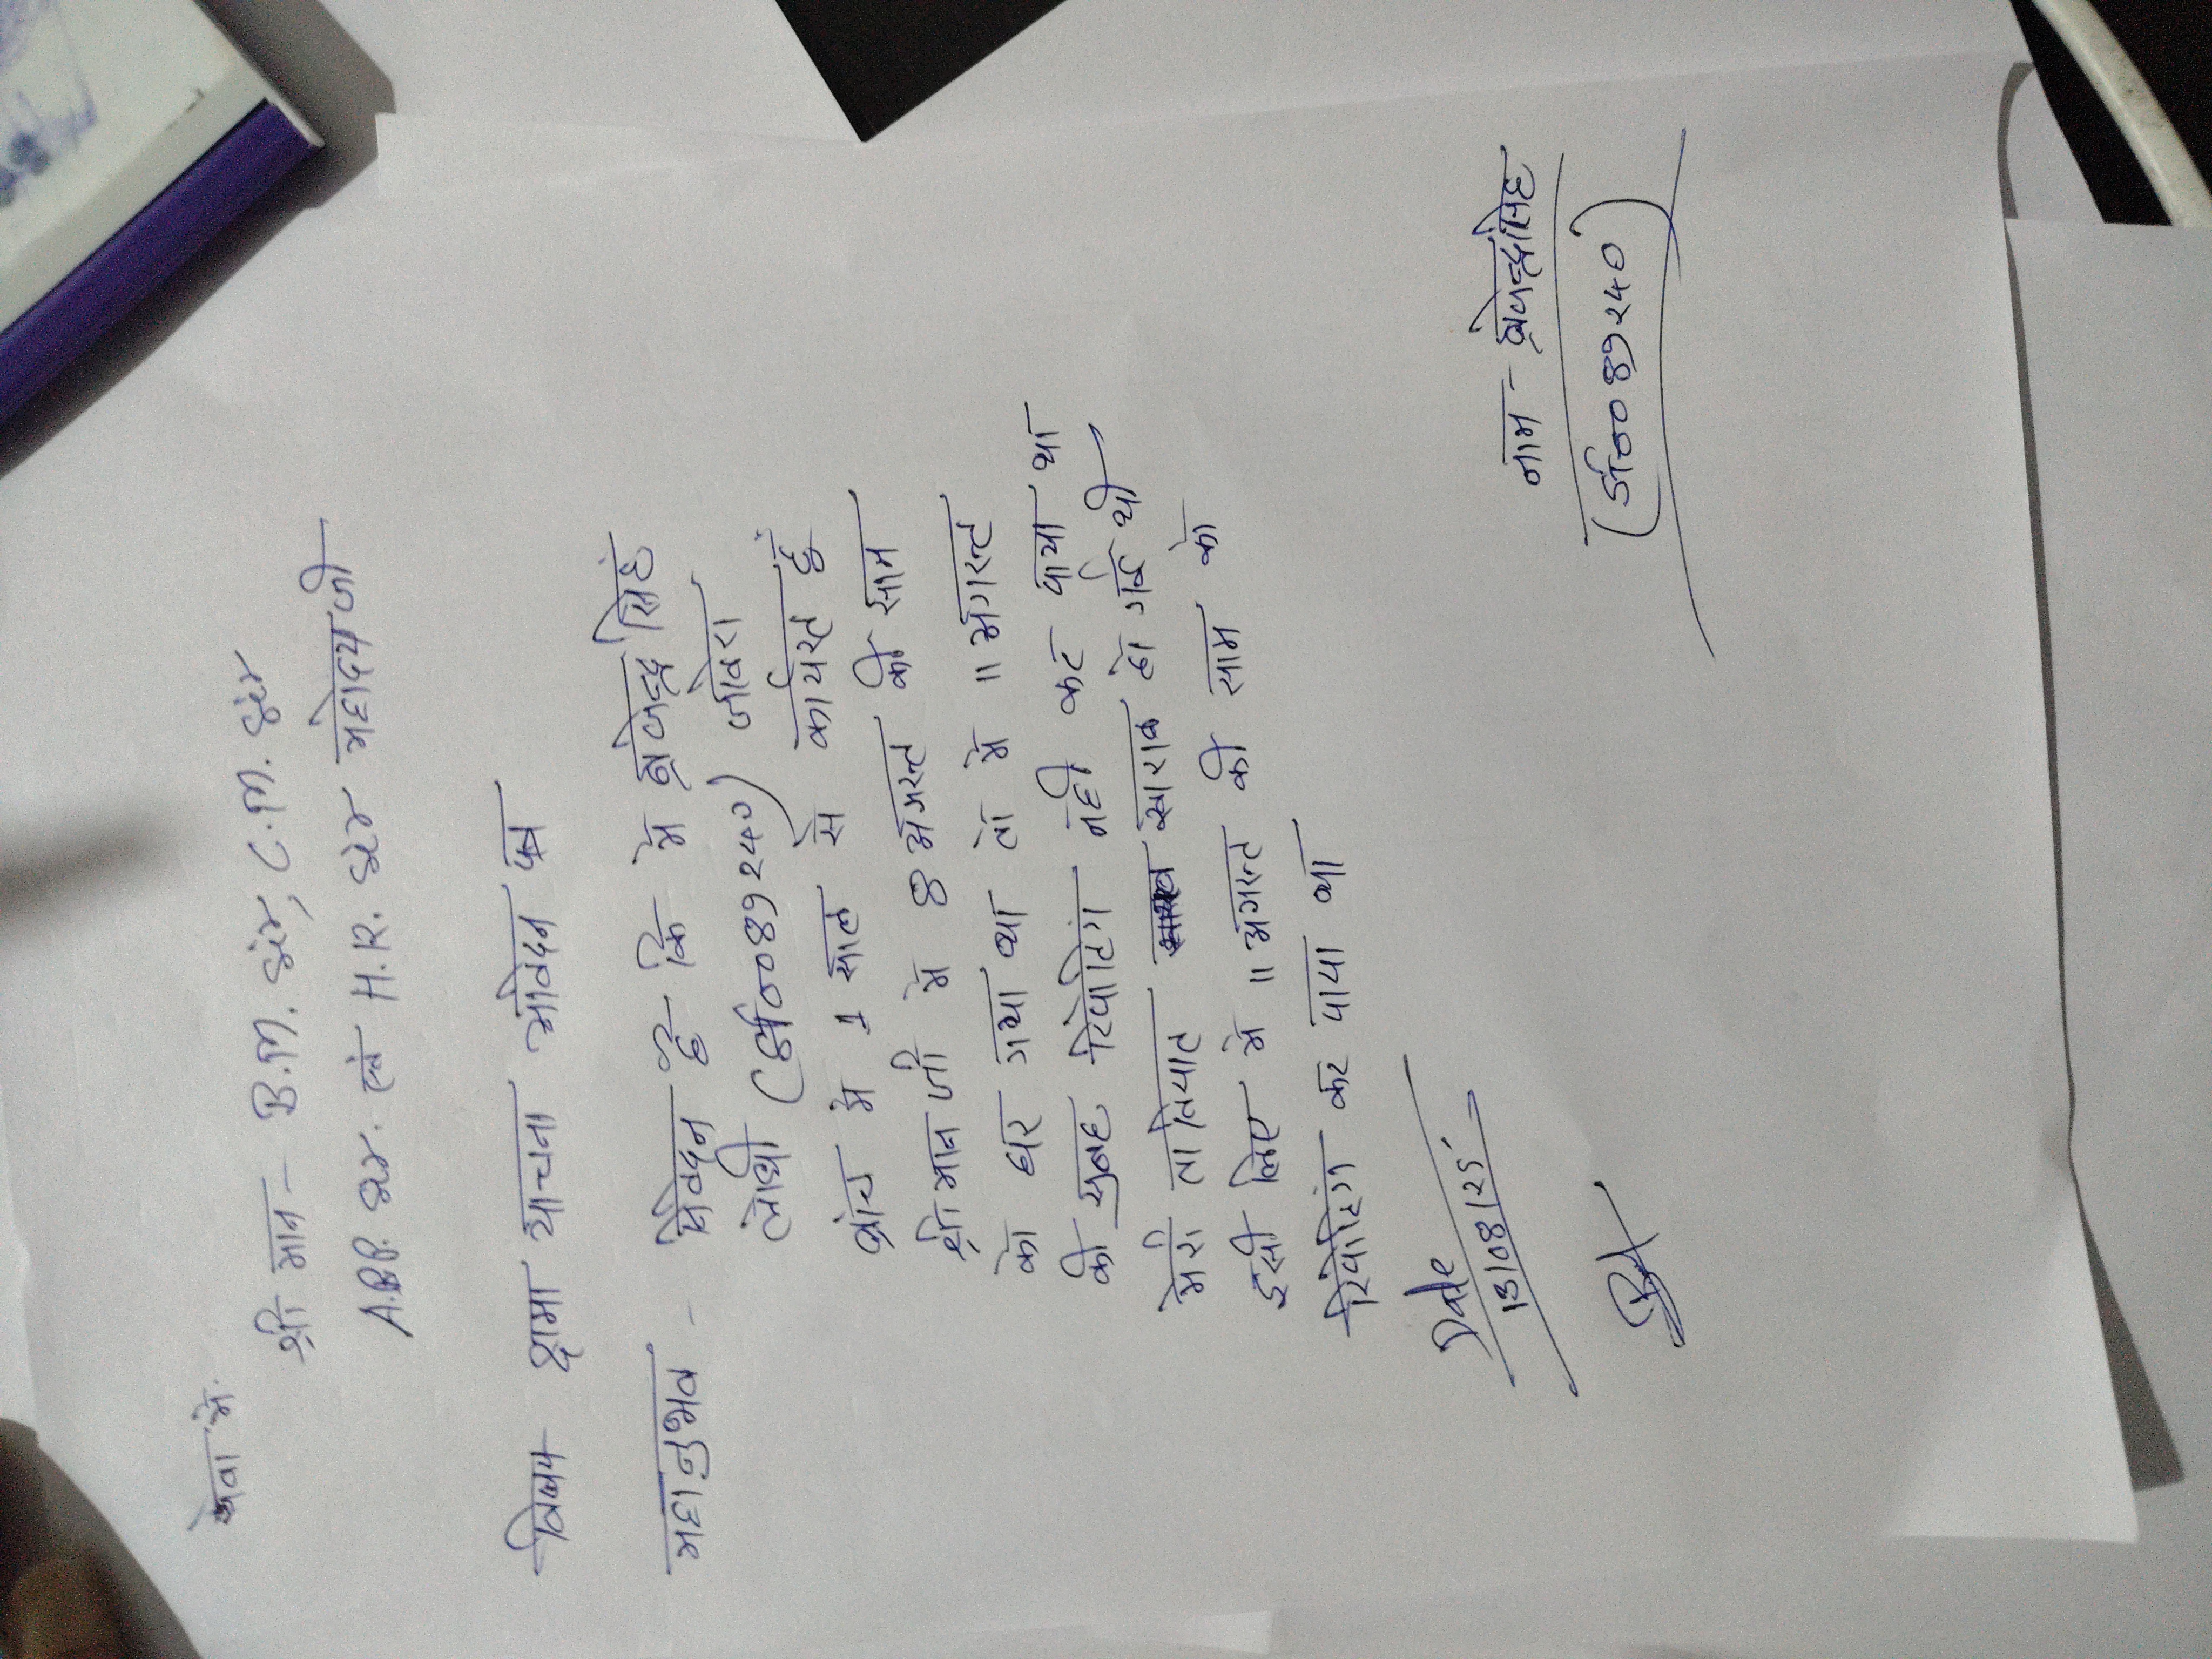 सेवा में.
श्री मान - B.M. सर, C.M. सर
A.B.P. सर. एवं H.R. सर महोदय जी
विषय क्षमा याचना आवेदन पत्र
महानुभव - निवेदन है कि में ब्रजेन्द्र सिंह
लोधी (089240) जावरा
ब्रांच में 1 साल से कार्यरत हूँ
श्री मान जी में 8 अगस्त की साम
को घर गया था तो में 11 अगस्त
की सुबह रिपोटिंग नही कर पाया था
मेरी तावियात खाराब हो गई थी
इसी लिए में 11 अगस्त की साम को
रिपोटिंग कर पाया था
Date
13/08/25
नाम - ब्रजेन्द्र सिंह
(089240)